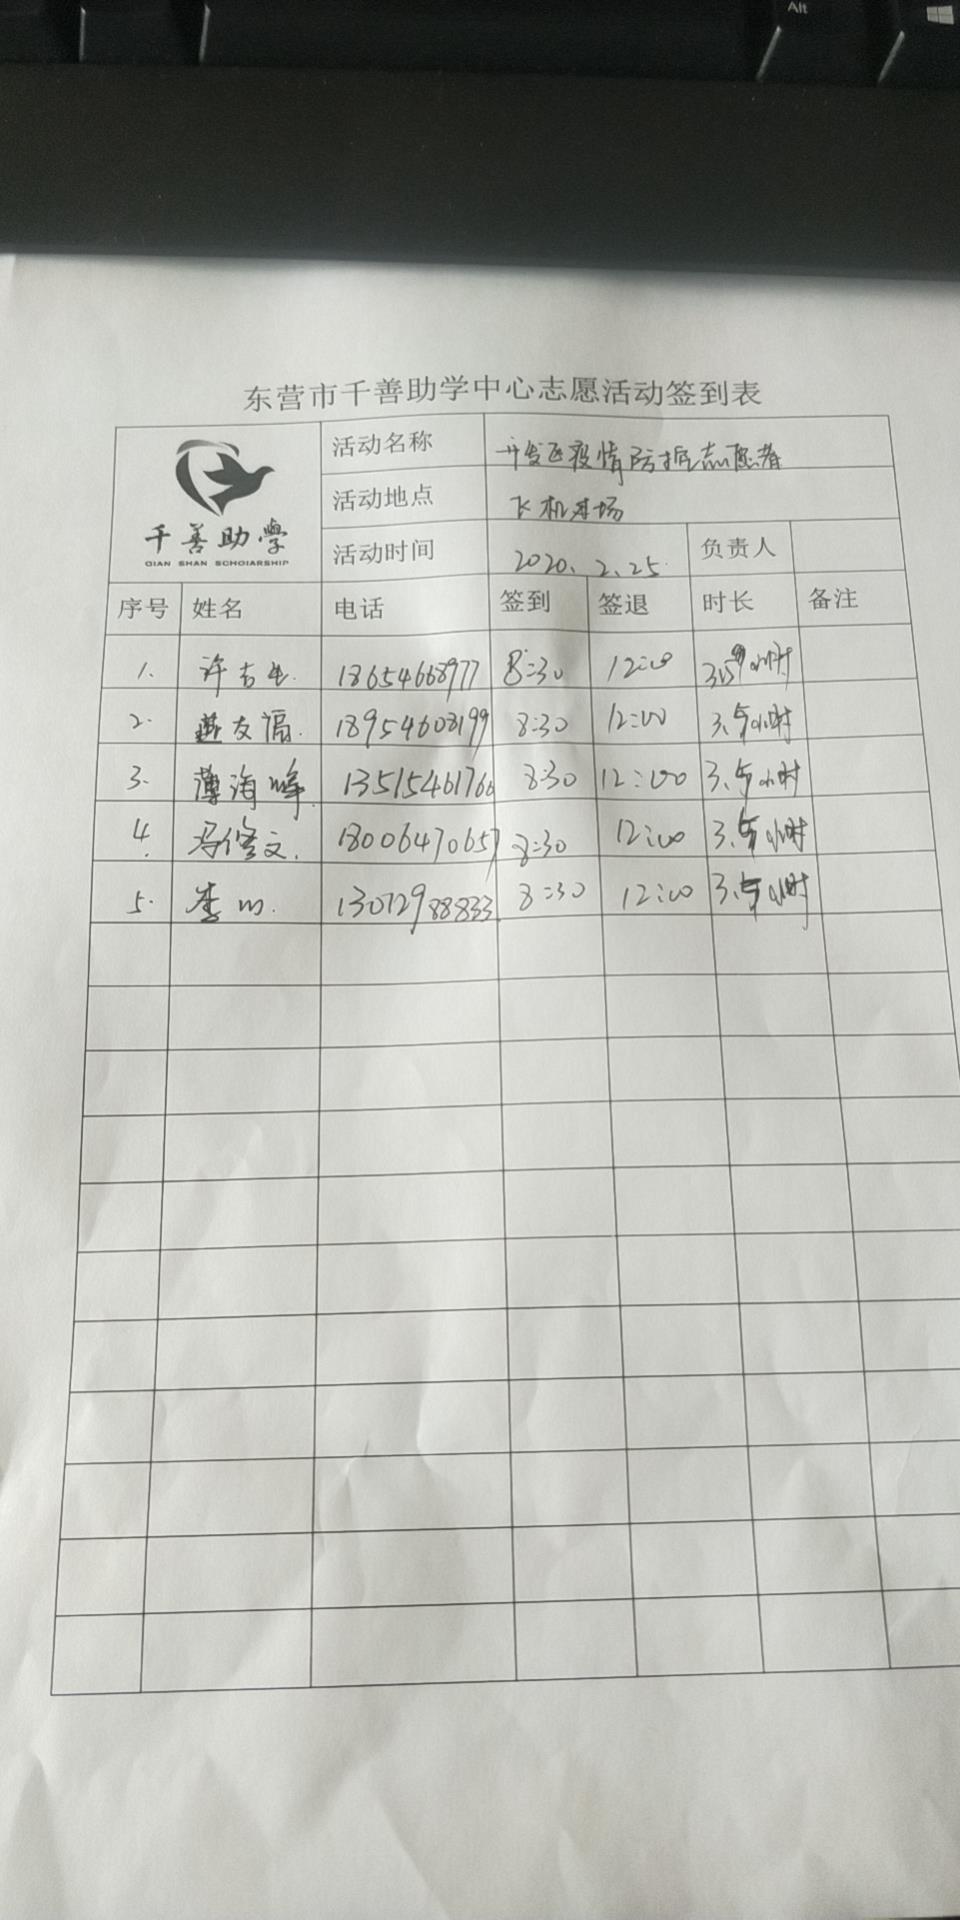 Alt
东营市千善助学中心志愿活动签到表
千善助學
QIAN SHAN SCHOIARSHIP
活动名称 开发区疫情防控志愿者
活动地点 飞机市场
活动时间 2020.2.25. 负责人
序号 姓名 电话 签到 签退 时长 备注
1. 许吉 18654668977 8:30 12:00 3.5小时
2. 燕友福. 18954608199 8:30 12:00 3.5小时
3. 薄海峰. 13515461766 8:30 12:00 3.5小时
4. 冯修文. 18006470657 8:30 12:00 3.5小时
5. 李 13012988833 8:30 12:00 3.5小时